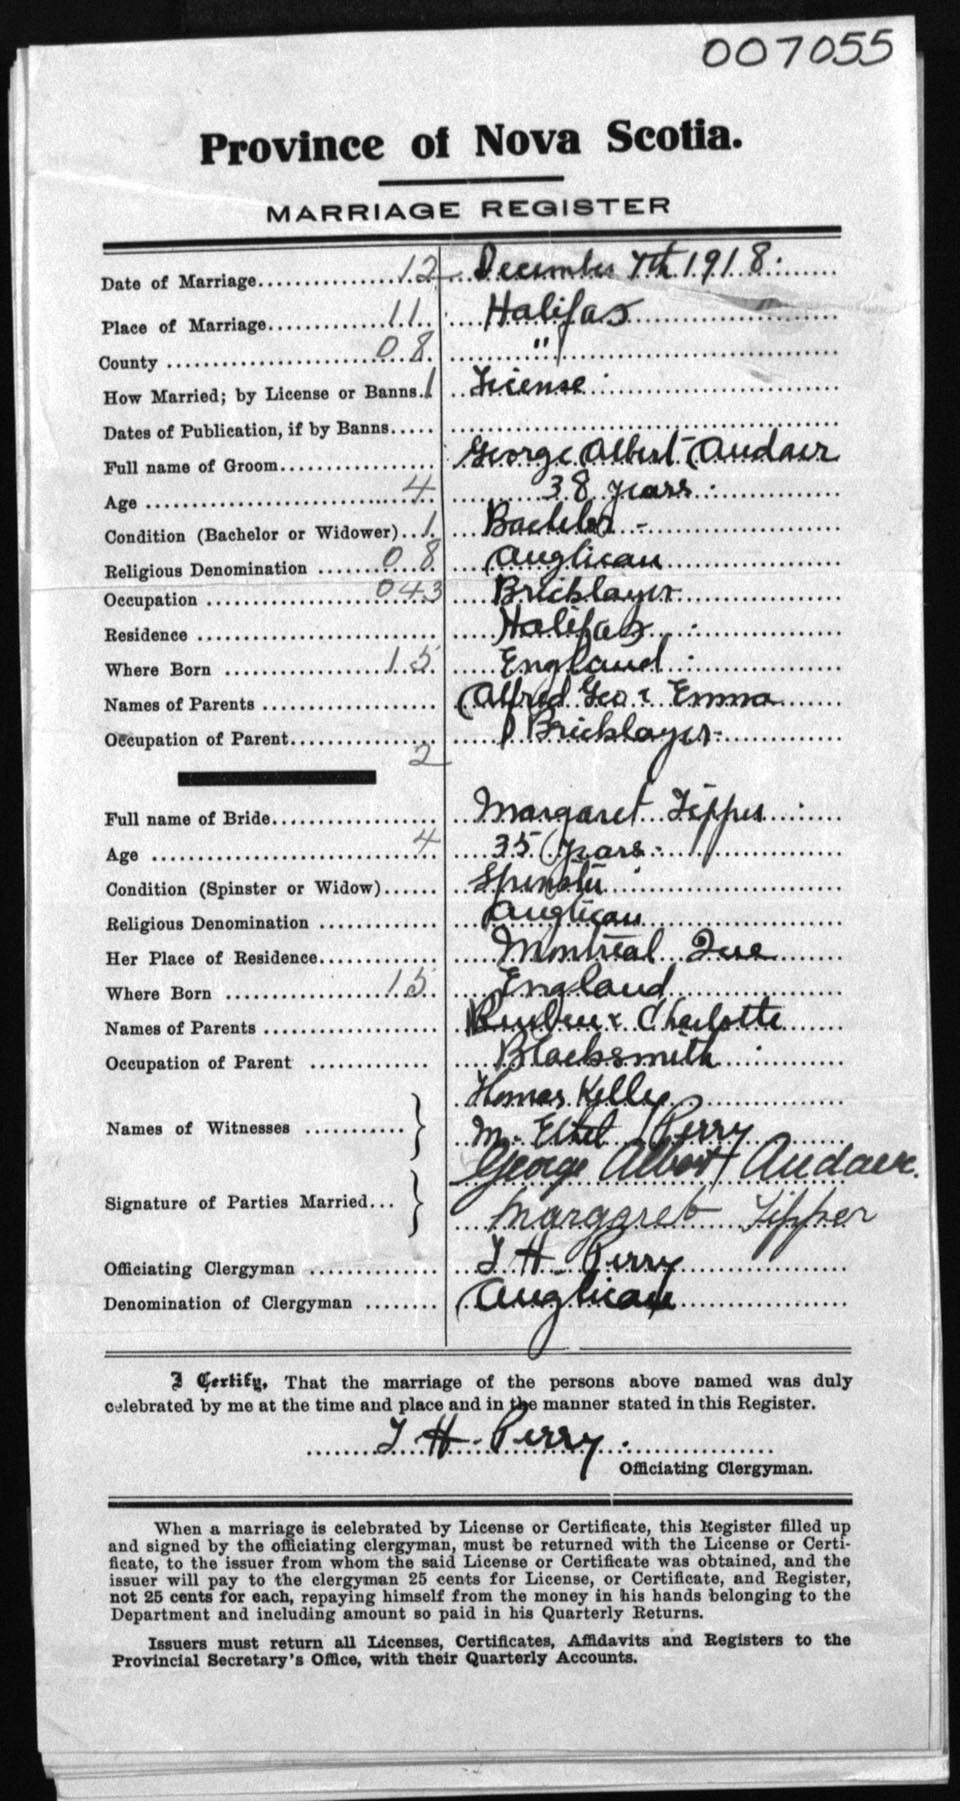 007055
Province of Nova Scotia.
MARRIAGE REGISTER
Date of Marriage 12 December 7th 1918.
Place of Marriage 11 Halifax
County 08 "
How Married; by License or Banns 1 License
Dates of Publication, if by Banns
Full name of Groom George Albert Audaer
Age 4 38 years
Condition (Bachelor or Widower) 1 Bachelor -
Religious Denomination 08 Anglican
Occupation 043 Bricklayer
Residence Halifax
Where Born 15 England
Names of Parents Alfred Geo & Emma
Occupation of Parent Bricklayer
2
Full name of Bride Margaret Tipper
Age 4 35 years
Condition (Spinster or Widow) Spinster
Religious Denomination Anglican
Her Place of Residence Montreal Que
Where Born 15 England
Names of Parents Reuben & Charlotte
Occupation of Parent Blacksmith
Thomas Kelley
Names of Witnesses } M. Ethel Perry
George Albert
Signature of Parties Married }
Margaret Tipper
Officiating Clergyman T H Perry
Denomination of Clergyman Anglican
I Certify, That the marriage of the persons above named was duly
celebrated by me at the time and place and in the manner stated in this Register.
T H Perry.
Officiating Clergyman.
When a marriage is celebrated by License or Certificate, this Register filled up
and signed by the officiating clergyman, must be returned with the License or Certi-
ficate, to the issuer from whom the said License or Certificate was obtained, and the
issuer will pay to the clergyman 25 cents for License, or Certificate, and Register,
not 25 cents for each, repaying himself from the money in his hands belonging to the
Department and including amount so paid in his Quarterly Returns.
Issuers must return all Licenses, Certificates, Affidavits and Registers to the
Provincial Secretary's Office, with their Quarterly Accounts.